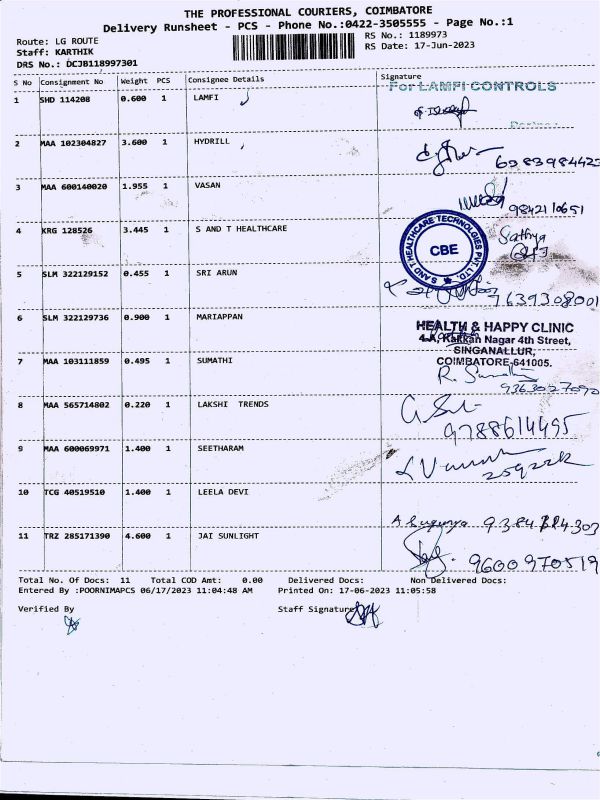 THE PROFESSIONAL COURIERS, COIMBATORE
Delivery Runsheet - PCS - Phone No.:0422-3505555 - Page No.:1
Route: LG ROUTE
Staff: KARTHIK
DRS No.: DCJB118997301
RS No.: 1189973
RS Date: 17-Jun-2023
S No Consignment No Weight PCS Consignee Details Signature
For LAMFI CONTROLS
1 SHD 114208 0.600 1 LAMFI
2 MAA 102304827 3.600 1 HYDRILL
3 MAA 600140020 1.955 1 VASAN
9842110651
4 KRG 128526 3.445 1 S AND T HEALTHCARE
S AND T HEALTHCARE TECHNOLGIES PVT. LTD.
CBE
Sathya
5 SLM 322129152 0.455 1 SRI ARUN
7639308001
6 SLM 322129736 0.900 1 MARIAPPAN
HEALTH & HAPPY CLINIC
4-A, Kakkan Nagar 4th Street,
SINGANALLUR,
COIMBATORE-641005.
7 MAA 103111859 0.495 1 SUMATHI
9363027090
8 MAA 565714802 0.220 1 LAKSHI TRENDS
9788614495
9 MAA 600069971 1.400 1 SEETHARAM
10 TCG 40519510 1.400 1 LEELA DEVI
11 TRZ 285171390 4.600 1 JAI SUNLIGHT
9600970519
Total No. Of Docs: 11 Total COD Amt: 0.00 Delivered Docs: Non Delivered Docs:
Entered By :POORNIMAPCS 06/17/2023 11:04:48 AM Printed On: 17-06-2023 11:05:58
Verified By Staff Signature